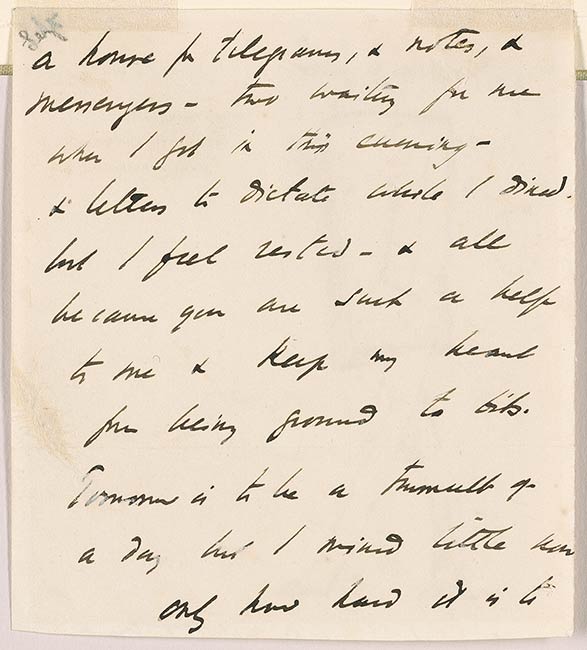 Self
a house for telegrams, & notes, &
messengers – two waiting for me
when I got in this evening –
& letters to dictate while I dined.
but I feel rested – & all
because you are such a help
to me & keep my heart
from being ground to bits.
Tomorrow is to be a tumult of
a day but I mind little now
only how hard it is to